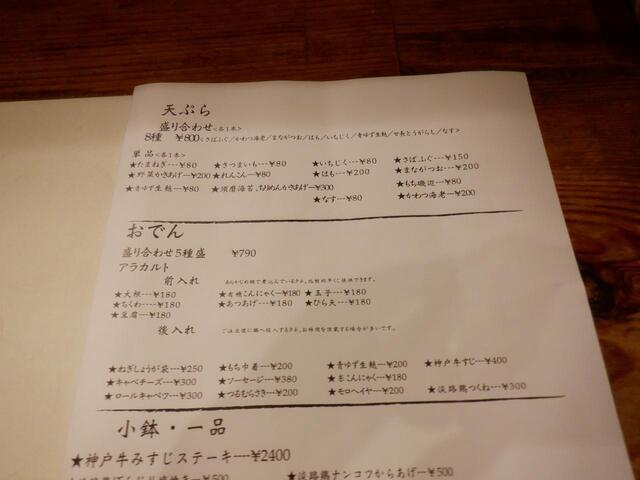 天ぷら
盛り合わせ<各1本>
8種 ¥800<さばふぐ/かわつ海老/まながつお/はも/いちじく/青ゆず生麩/甘長とうがらし/なす>
単品<各1本>
★たまねぎ---¥80 ★さつまいも---¥80 ★いちじく---¥80 ★さばふぐ---¥150
★野菜かきあげ---¥200 ★れんこん---¥80 ★はも---¥200 ★まながつお---¥200
★青ゆず生麩---¥80 ★須磨海苔、ちりめんかきあげ---¥300 ★もち磯辺---¥80
★なす---¥80 ★かわつ海老---¥200
おでん
盛り合わせ5種盛 ¥790
アラカルト
前入れ
★大根---¥180 ★有機こんにゃく---¥180 ★玉子---¥180
★ちくわ---¥180 ★あつあげ---¥180 ★ひら天---¥180
★豆腐---¥180
後入れ
★ねぎしょうが袋---¥250 ★もち巾着---¥200 ★青ゆず生麩---¥200 ★神戸牛すじ---¥400
★キャベチーズ---¥300 ★ソーセージ---¥380 ★糸こんにゃく---¥180
★ロールキャベツ---¥300 ★つるむらさき---¥200 ★モロヘイヤ---¥200 ★淡路鶏つくね---¥300
小鉢・一品
★神戸牛みすじステーキ----¥2400
★淡路鶏ナンコツからあげ---¥500